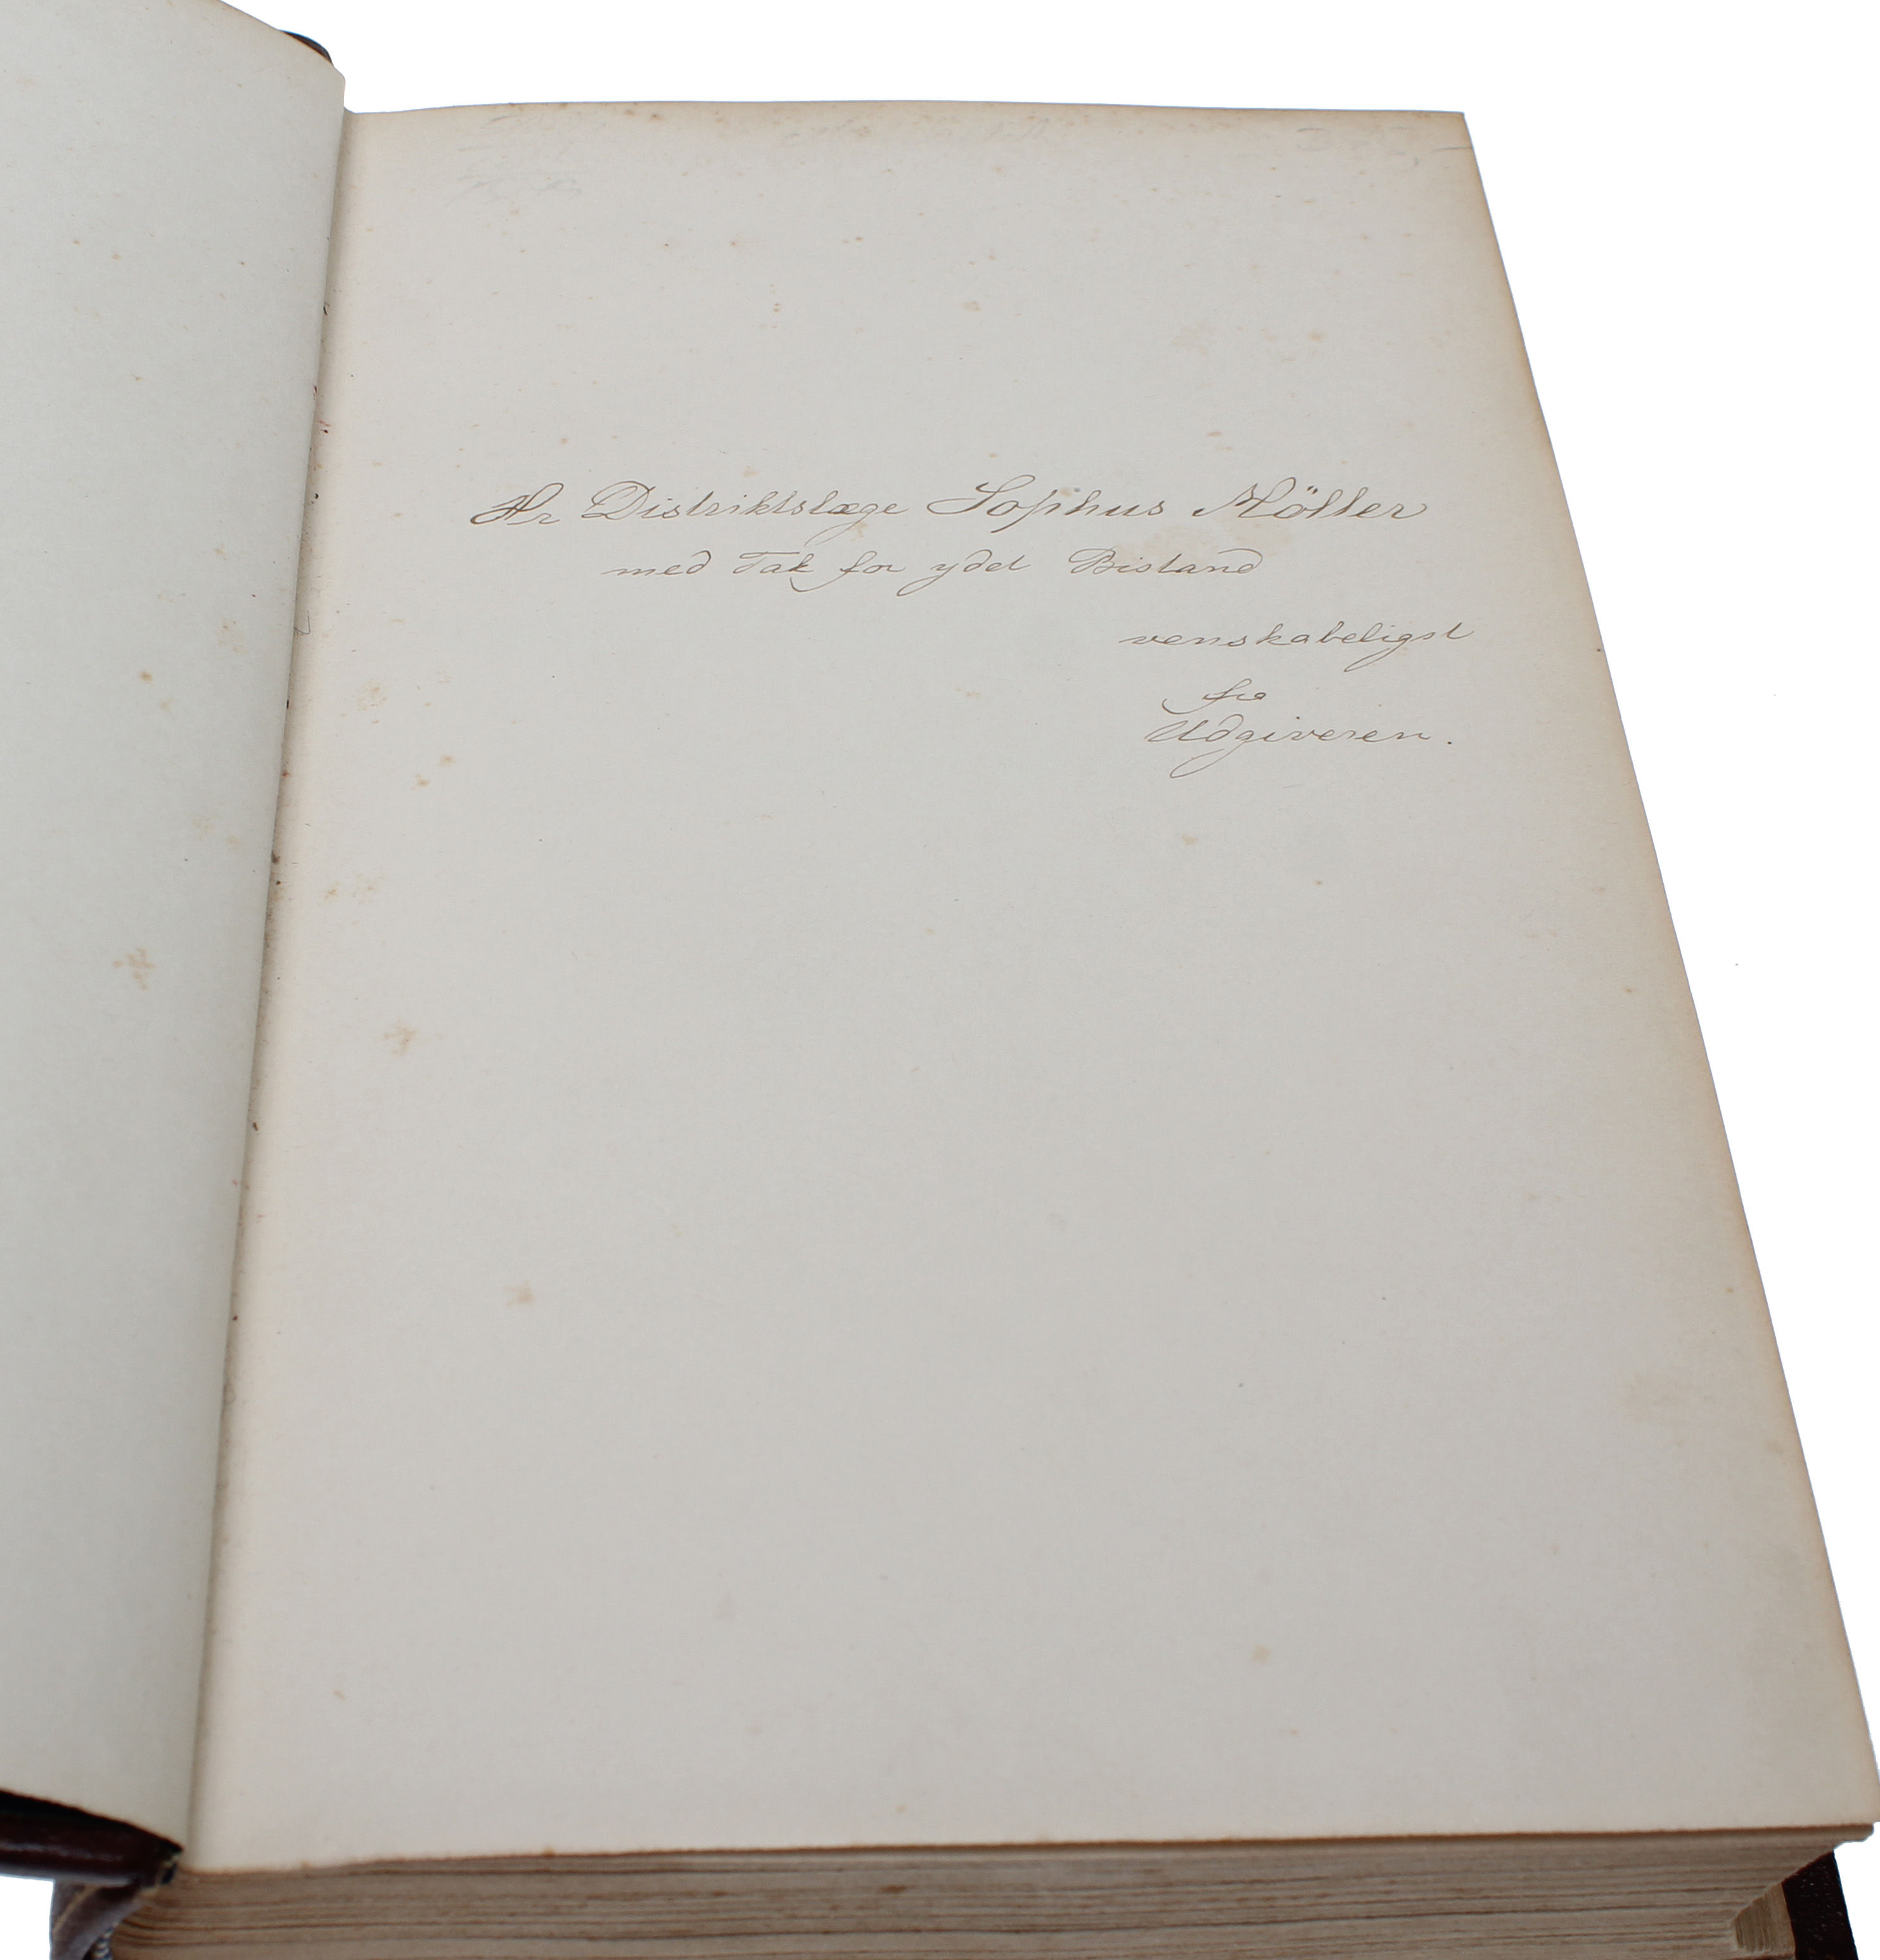 Hr Distriktslæge Sophus Möller
med Tak for ydet Bistand
venskabeligst
fra
Udgiveren.